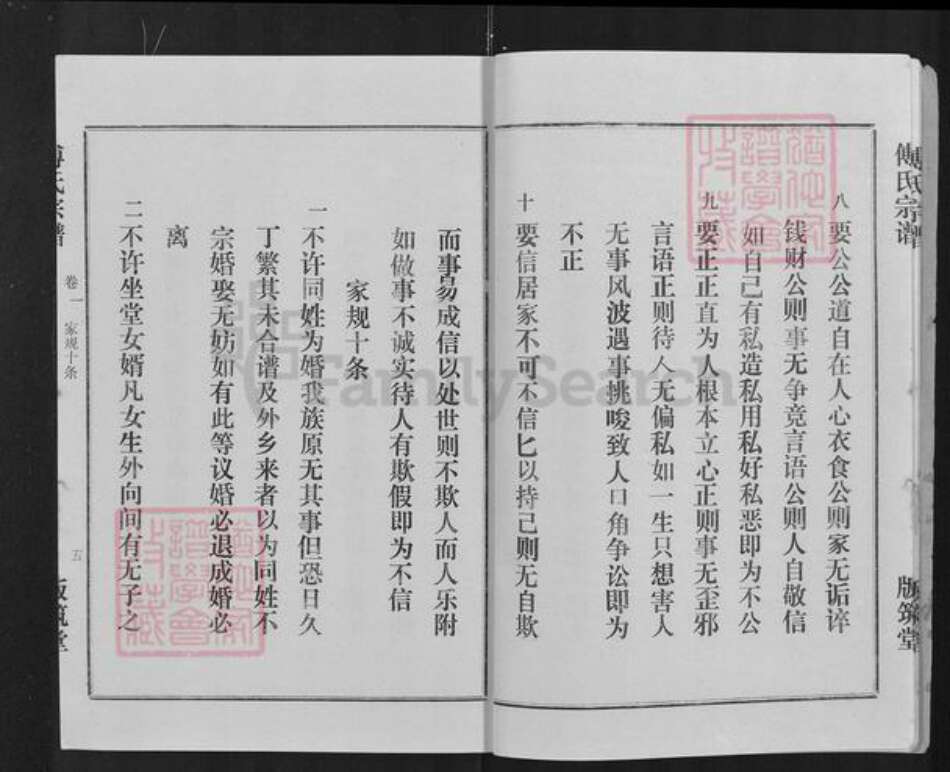 傅氏宗谱
版筑堂
八 要公公道自在人心衣食公则家无诟谇
钱财公则事无争竞言语公则人自敬信
如自己有私造私用私好私恶即为不公
九 要正正直为人根本立心正则事无歪邪
言语正则待人无偏私如一生只想害人
无事风波遇事挑唆致人口角争讼即为
不正
十 要信居家不可不信匕以持己则无自欺
而事易成信以处世则不欺人而人乐附
如做事不诚实待人有欺假即为不信
家规十条
一 不许同姓为婚我族原无其事但恐日久
丁繁其未合谱及外乡来者以为同姓不
宗婚娶无妨如有此等议婚必退成婚必
离
二 不许坐堂女婿凡女生外向间有无子之
傅氏宗谱
卷一 家规十条
五
版筑堂
FamilySearch